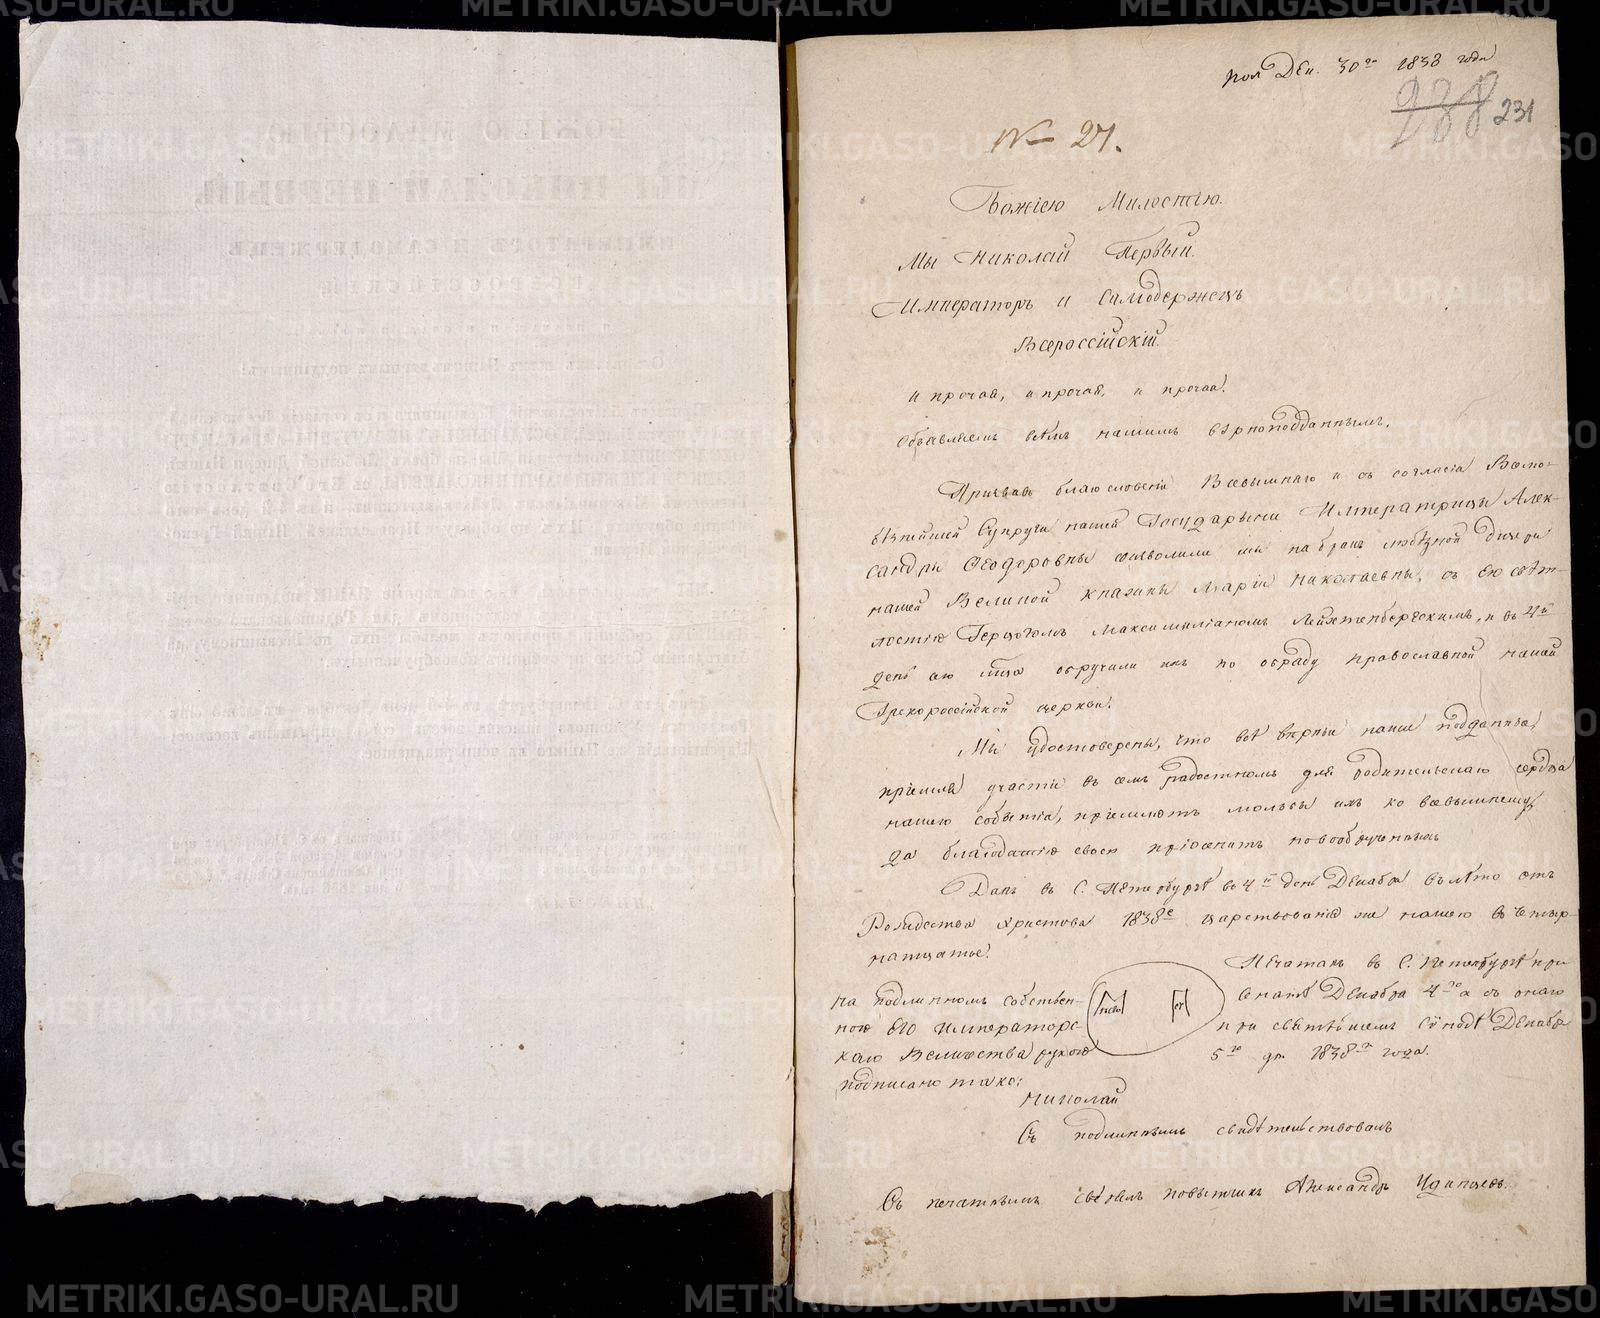 пол Дек. 30го 1838 года
238 231
№ 27.
Божіею Милостію.
Мы Николай Первый.
Императоръ и Самодержецъ
Всероссійскій.
и прочая, и прочая, и прочая.
Объявляемъ всѣмъ нашимъ вѣрноподданнымъ.
Призвавъ благословеніе Всевышняго и съ согласія Возлю-
бѣзнѣйшей Супруги нашей Государыни Императрицы Алек-
сандры Ѳеодоровны соизволили мы на бракъ любѣзной Дщери
нашей Великой Княжны Маріи Николаевны, съ Его свѣт-
лостію Герцогомъ Максимиліаномъ Лейхтенбергскимъ, и въ 4й
день сего м-ца обручили ихъ по обряду православной нашей
Грекороссійской церкви.
Мы удостоверены, что всѣ вѣрные наши подданныя,
пріемля участіе въ семъ радостномъ для родительскаго сердца
нашего событіи, пріемлютъ мольбы ихъ ко всевышнему,
да благодатію своею пріосенитъ новообрученныхъ
Данъ въ С. Петербургѣ въ 4й день Декабря въ лѣто отъ
Рождества Христова 1838е царствованія же нашего въ четыр-
натцатое.
На подлинномъ собствен-
ною Его Императорс-
каго Величества рукою
подписано тако:
Николай
Печатанъ въ С. Петербургѣ при
Сенатѣ Декабря 4го а съ онаго
при святѣйшемъ Сѵнодѣ Декабря
5го дня 1838го года.
Съ подлиннымъ свидѣтельствовалъ
Съ печатнымъ свѣрялъ повытчикъ Александръ Удинцевъ.
METRIKI.GASO-URAL.RU